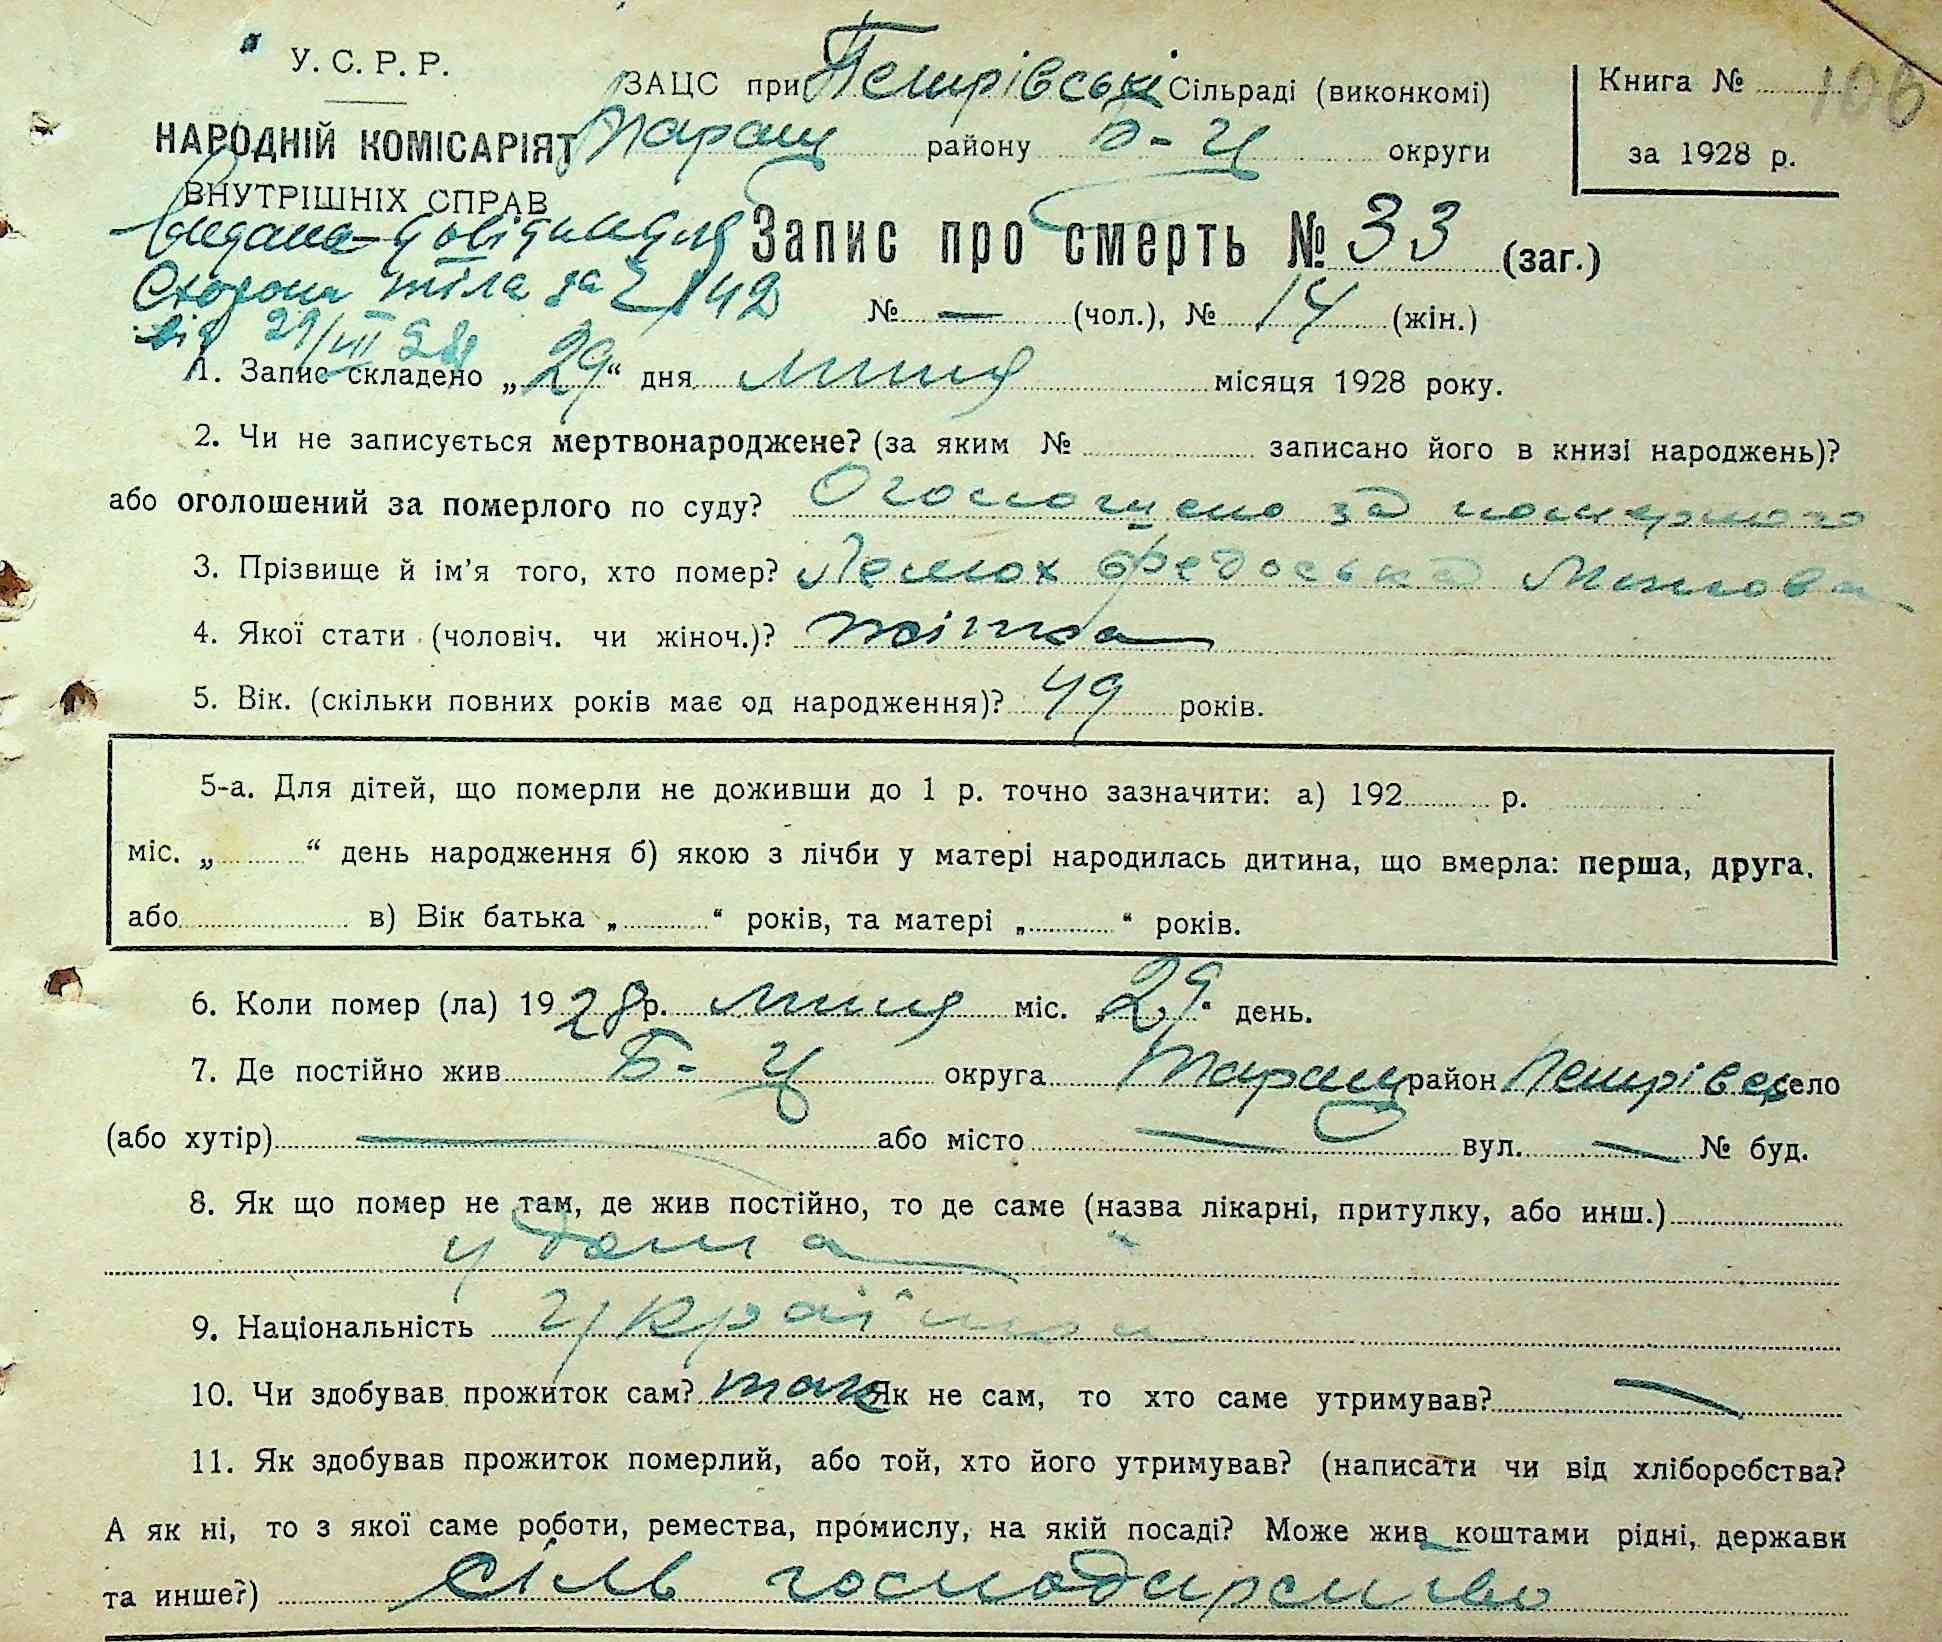 У. С. Р. Р.
ЗАЦС при Петрівські Сільраді (виконкомі)
Книга № 106
НАРОДНІЙ КОМІСАРІЯТ
Таращ району Б-Ц округи
за 1928 р.
ВНУТРІШНІХ СПРАВ
Видана довідка для
Запис про смерть № 33 (заг.)
Схорони тіла за № 42
№ — (чол.), № 14 (жін.)
від 29/VII 28
1. Запис складено „29“ дня липня місяця 1928 року.
2. Чи не записується мертвонароджене? (за яким № записано його в книзі народжень)?
або оголошений за померлого по суду? Оголошено за померлого
3. Прізвище й ім’я того, хто помер? Лемох Федоська
4. Якої стати (чоловіч. чи жіноч.)? жінка
5. Вік. (скільки повних років має од народження)? 49 років.
5-а. Для дітей, що померли не доживши до 1 р. точно зазначити: а) 192 р.
міс. „ “ день народження б) якою з лічби у матері народилась дитина, що вмерла: перша, друга.
або в) Вік батька „ “ років, та матері „ “ років.
6. Коли помер (ла) 1928 р. липня міс. „29“ день.
7. Де постійно жив Б-Ц округа Таращ район Петрівец село
(або хутір) — або місто — вул. — № буд.
8. Як що помер не там, де жив постійно, то де саме (назва лікарні, притулку, або инш.)
у дома
9. Національність українка
10. Чи здобував прожиток сам? так Як не сам, то хто саме утримував? —
11. Як здобував прожиток померлий, або той, хто його утримував? (написати чи від хліборобства?
А як ні, то з якої саме роботи, ремества, промислу, на якій посаді? Може жив коштами рідні, держави
та инше?) сіль господарство